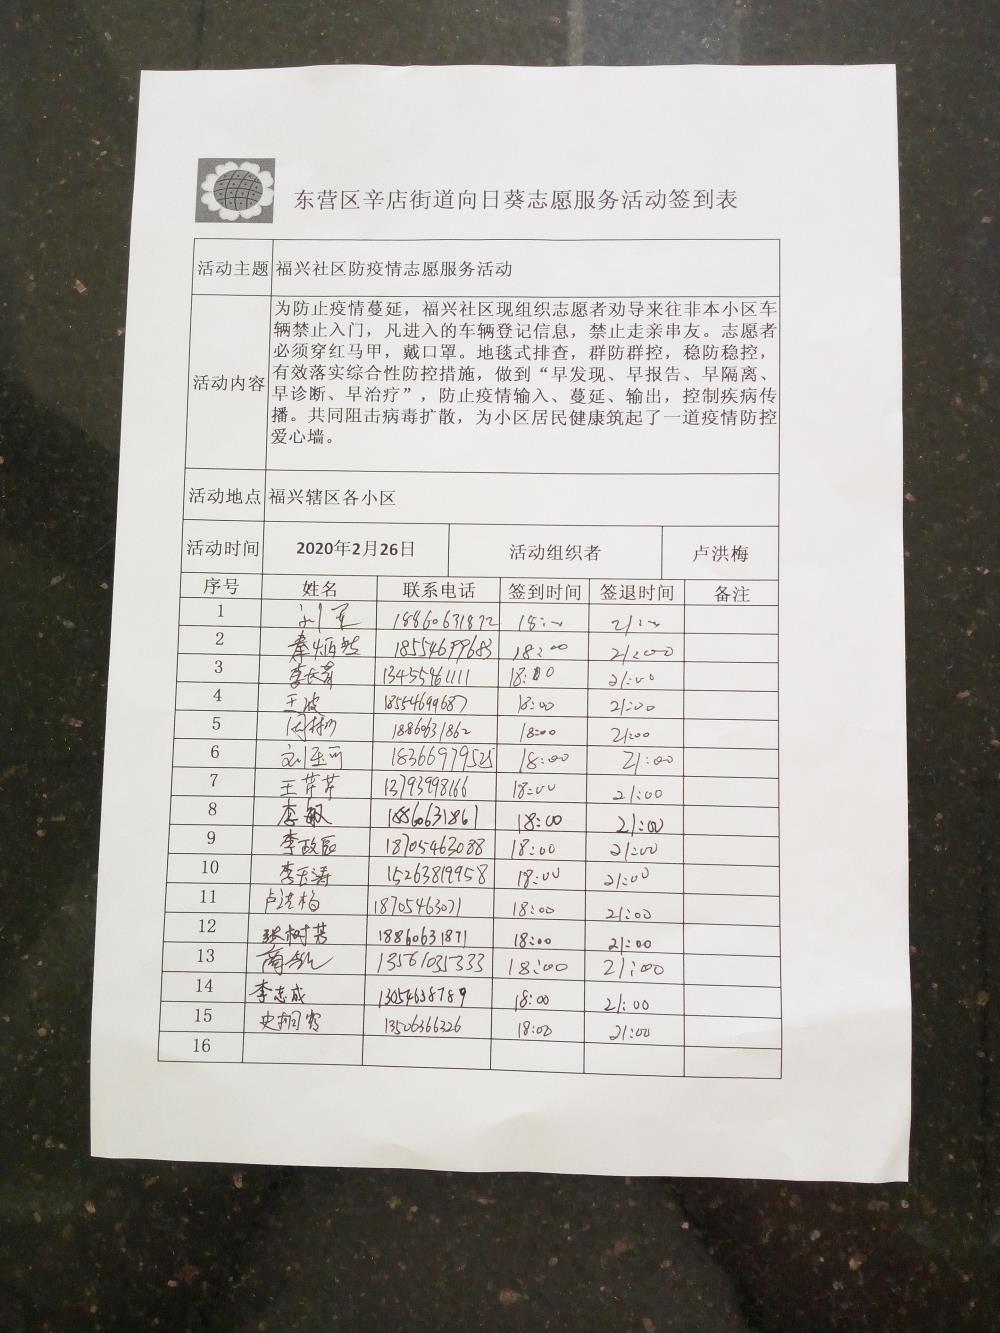 东营区辛店街道向日葵志愿服务活动签到表
活动主题 福兴社区防疫情志愿服务活动
活动内容
为防止疫情蔓延，福兴社区现组织志愿者劝导来往非本小区车
辆禁止入门，凡进入的车辆登记信息，禁止走亲串友。志愿者
必须穿红马甲，戴口罩。地毯式排查，群防群控，稳防稳控，
有效落实综合性防控措施，做到“早发现、早报告、早隔离、
早诊断、早治疗”，防止疫情输入、蔓延、输出，控制疾病传
播。共同阻击病毒扩散，为小区居民健康筑起了一道疫情防控
爱心墙。
活动地点 福兴辖区各小区
活动时间 2020年2月26日 活动组织者 卢洪梅
序号 姓名 联系电话 签到时间 签退时间 备注
1 18860631872 18:~ 21:~
2 18554699683 18:00 21:00
3 13455461111 18:00 21:00
4 王波 18554699687 18:00 21:00
5 18860631862 18:00 21:00
6 18366979525 18:00 21:00
7 王芹芹 13793998166 18:00 21:00
8 李敏 18860631861 18:00 21:00
9 18705463088 18:00 21:00
10 15263819958 18:00 21:00
11 卢洪梅 18705463071 18:00 21:00
12 张树芳 18860631871 18:00 21:00
13 13561035333 18:00 21:00
14 李志成 13054638789 18:00 21:00
15 13506366326 18:00 21:00
16